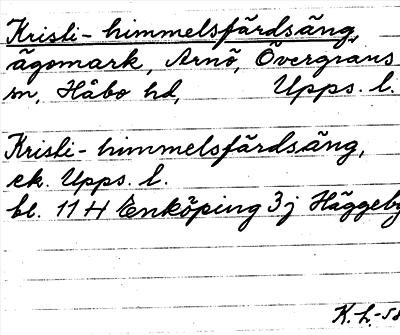 Kristi-himmelsfärdsäng,
ägomark, Arnö, Övergrans
sn, Håbo hd, Upps. l.
Kristi-himmelsfärdsäng,
ek. Upps. l.
bl. 11 H Enköping 3j Häggeby
K.L-58